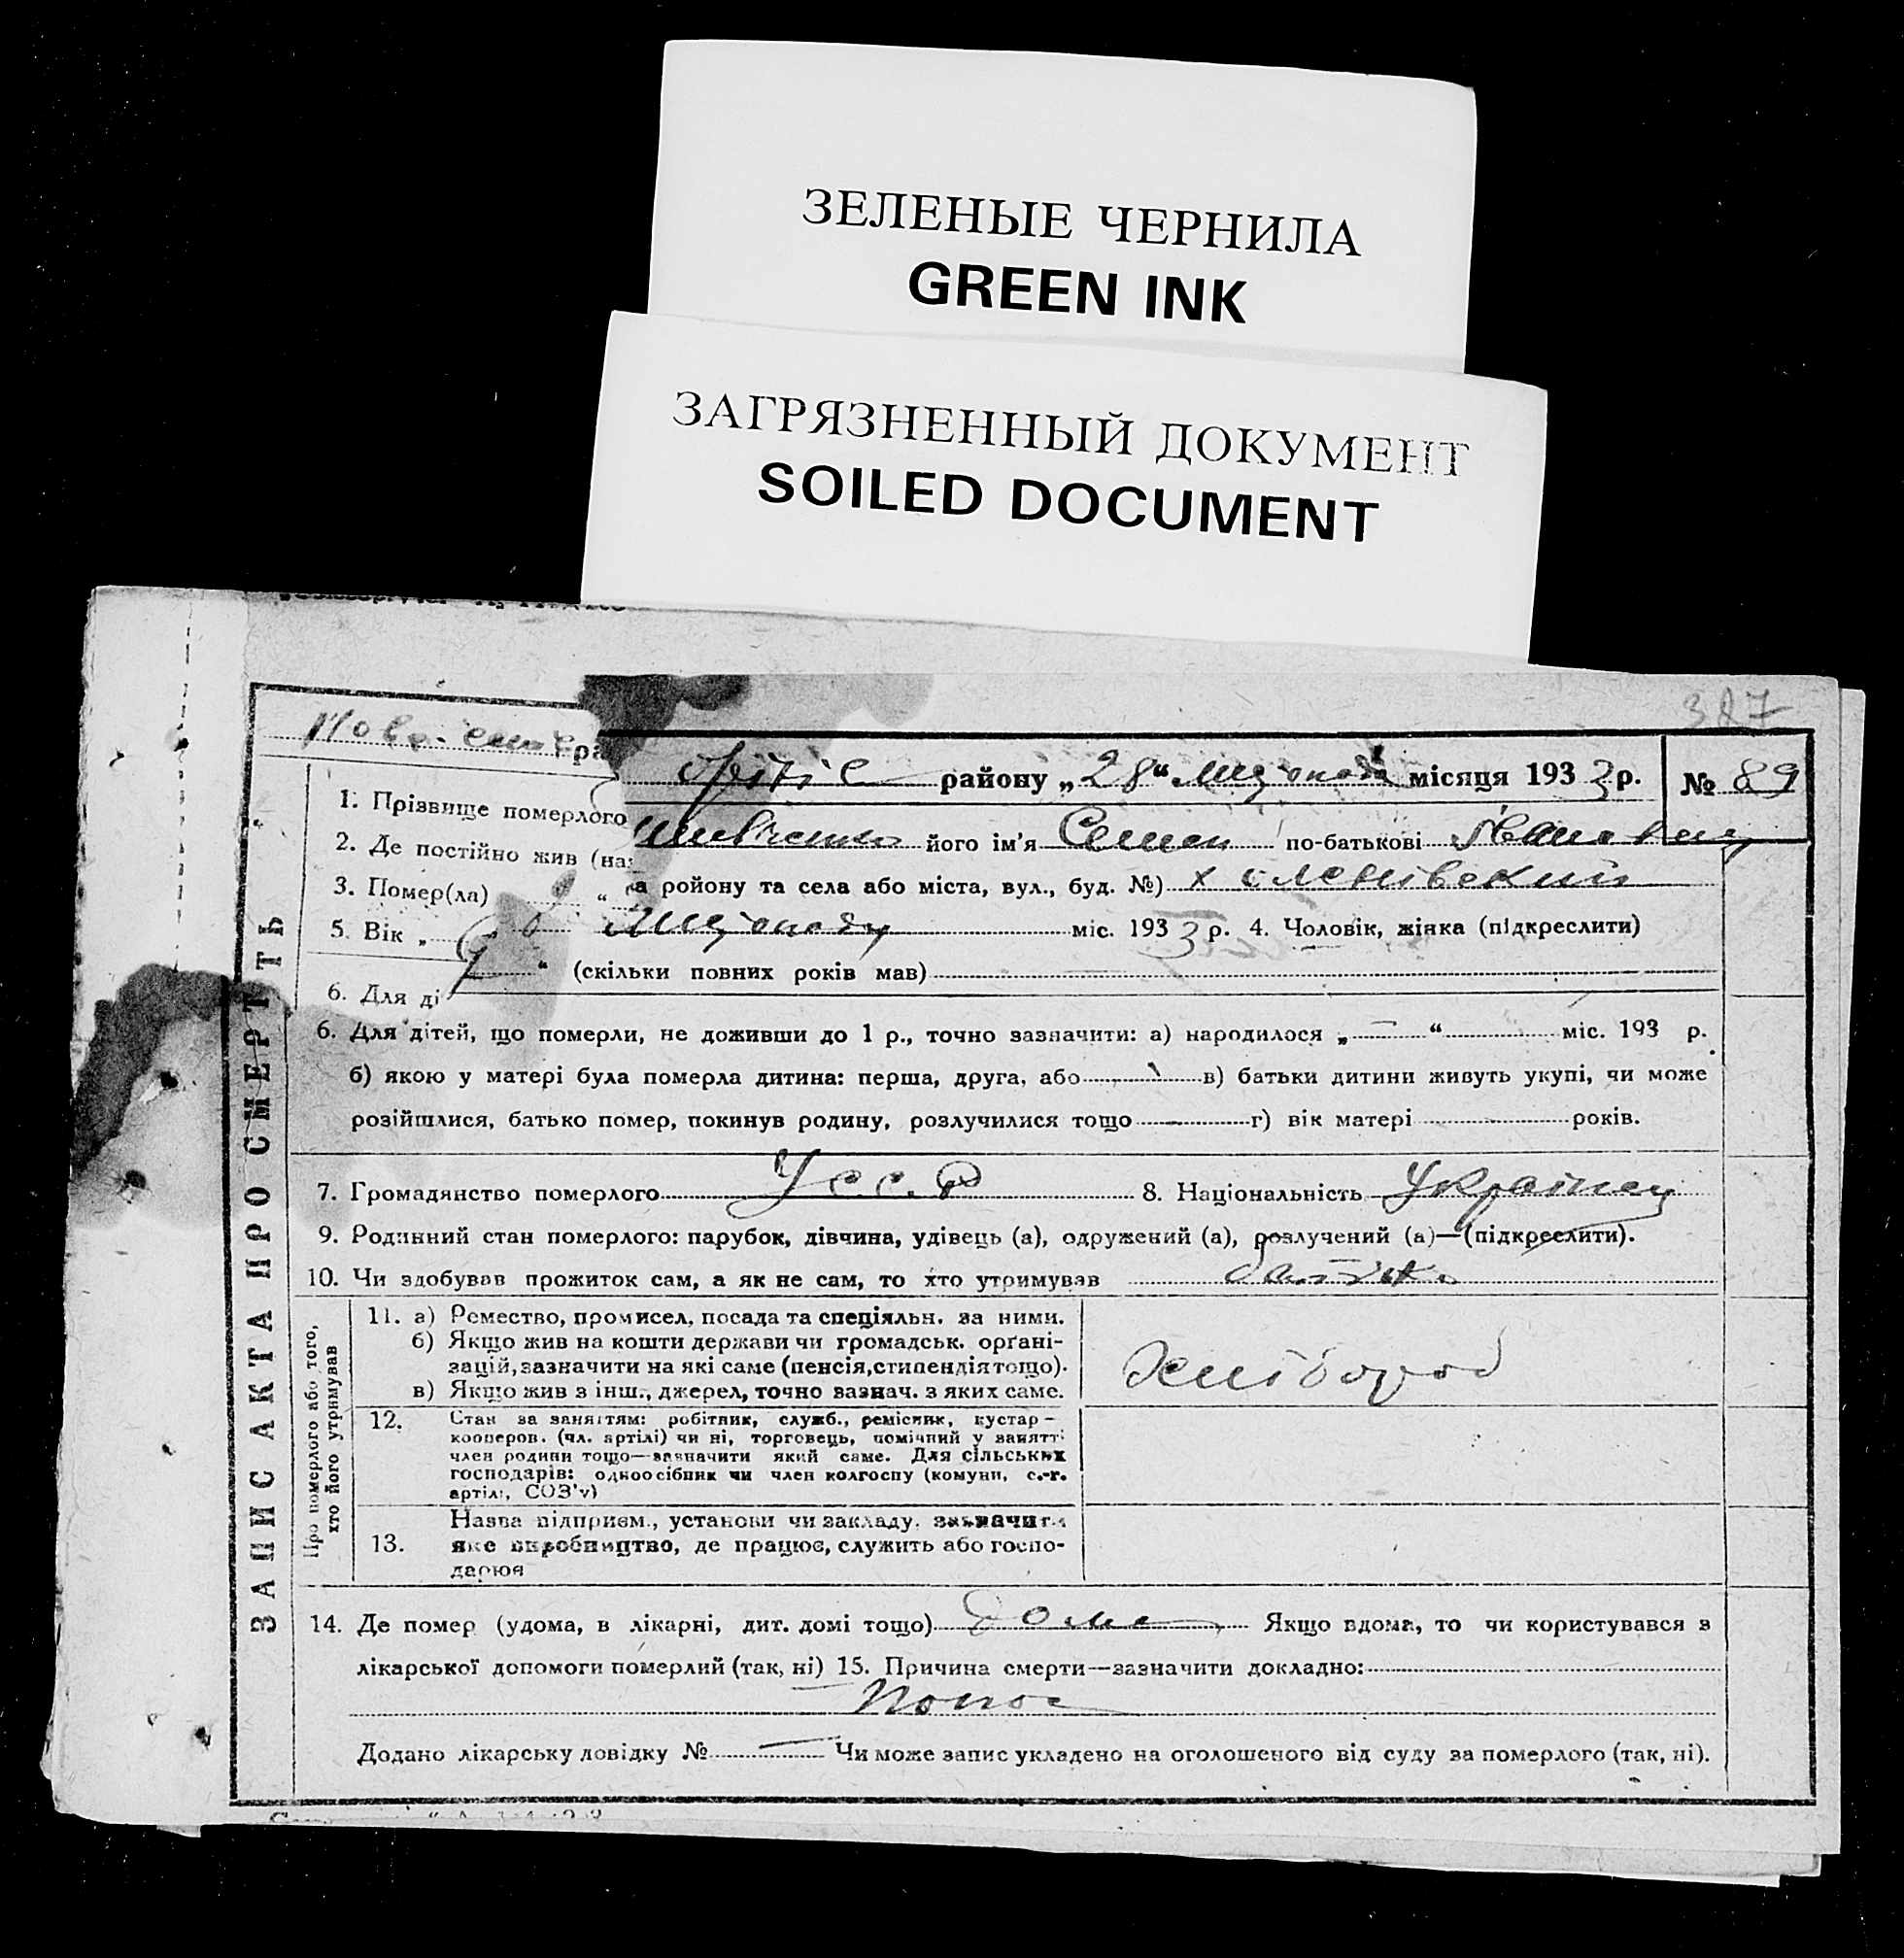 ЗЕЛЕНЫЕ ЧЕРНИЛА
GREEN INK
ЗАГРЯЗНЕННЫЙ ДОКУМЕНТ
SOILED DOCUMENT
387
району „28“ місяця 1933 р. № 89
1. Прізвище померлого його ім'я Семен по-батькові
2. Де постійно жив (на
а ройону та села або міста, вул., буд. №) х
3. Помер(ла) “ міс. 1933 р. 4. Чоловік, жінка (підкреслити)
5. Вік „ “ (скільки повних років мав)
6. Для ді
6. Для дітей, що померли, не доживши до 1 р., точно зазначити: а) народилося „ “ міс. 193 р.
б) якою у матері була померла дитина: перша, друга, або в) батьки дитини живуть укупі, чи може
розійшлися, батько помер, покинув родину, розлучилися тощо г) вік матері років.
7. Громадянство померлого У.с.с.Р 8. Національність Українец
9. Родинний стан померлого: парубок, дівчина, удівець (а), одружений (а), розлучений (а)—(підкреслити).
10. Чи здобував прожиток сам, а як не сам, то хто утримував
11. а) Ремество, промисел, посада та спеціяльн. за ними.
б) Якщо жив на кошти держави чи громадськ. орґані-
зацій, зазначити на які саме (пенсія, стипендія тощо).
в) Якщо жив з інш., джерел, точно зазнач. з яких саме.
Хлібороб
12. Стан за заняттям: робітник, служб., ремісник, кустар-
кооперов. (чл. артілі) чи ні, торговець, помічний у занятті
член родини тощо—зазначити який саме. Для сільських
господарів: одноосібник чи член колгоспу (комуни, с.-г.
артілі, СОЗ'у)
13. Назва підприєм., установи чи закладу, зазначити
яке виробництво, де працює, служить або госпо-
дарює
Про померлого або того,
хто його утримував
14. Де помер (удома, в лікарні, дит. домі тощо) дома Якщо вдома, то чи користувався з
лікарської допомоги померлий (так, ні) 15. Причина смерти—зазначити докладно:
Понос
Додано лікарську довідку № Чи може запис укладено на оголошеного від суду за померлого (так, ні).
ЗАПИС АКТА ПРО СМЕРТЬ